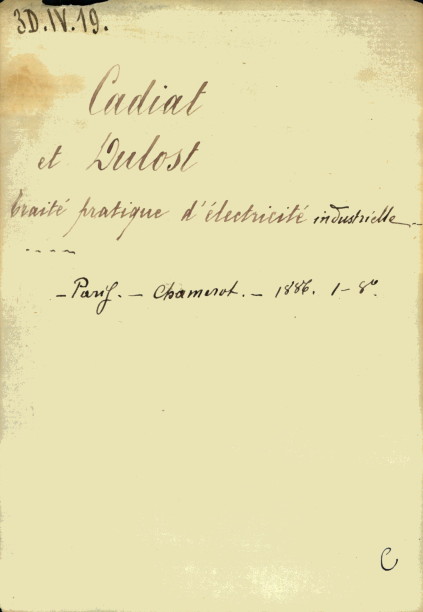 3D.IV.19.
Cadiat
et Dulost
traité pratique d'électricité industrielle -
- - - -
- Paris. - Chamerot. - 1886. 1-8º.
C